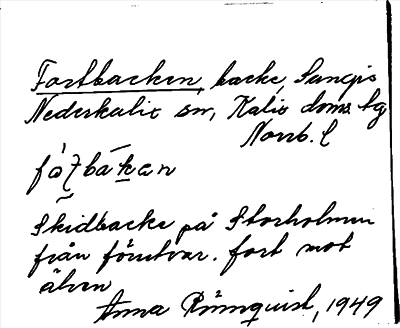 Fortbacken, backe, Sangis
Nederkalix sn, Kalix doms. tg
Norrb. l
Skidbacke på Storholmen
från
fort mot
älven
Anna Rönnquist, 1949